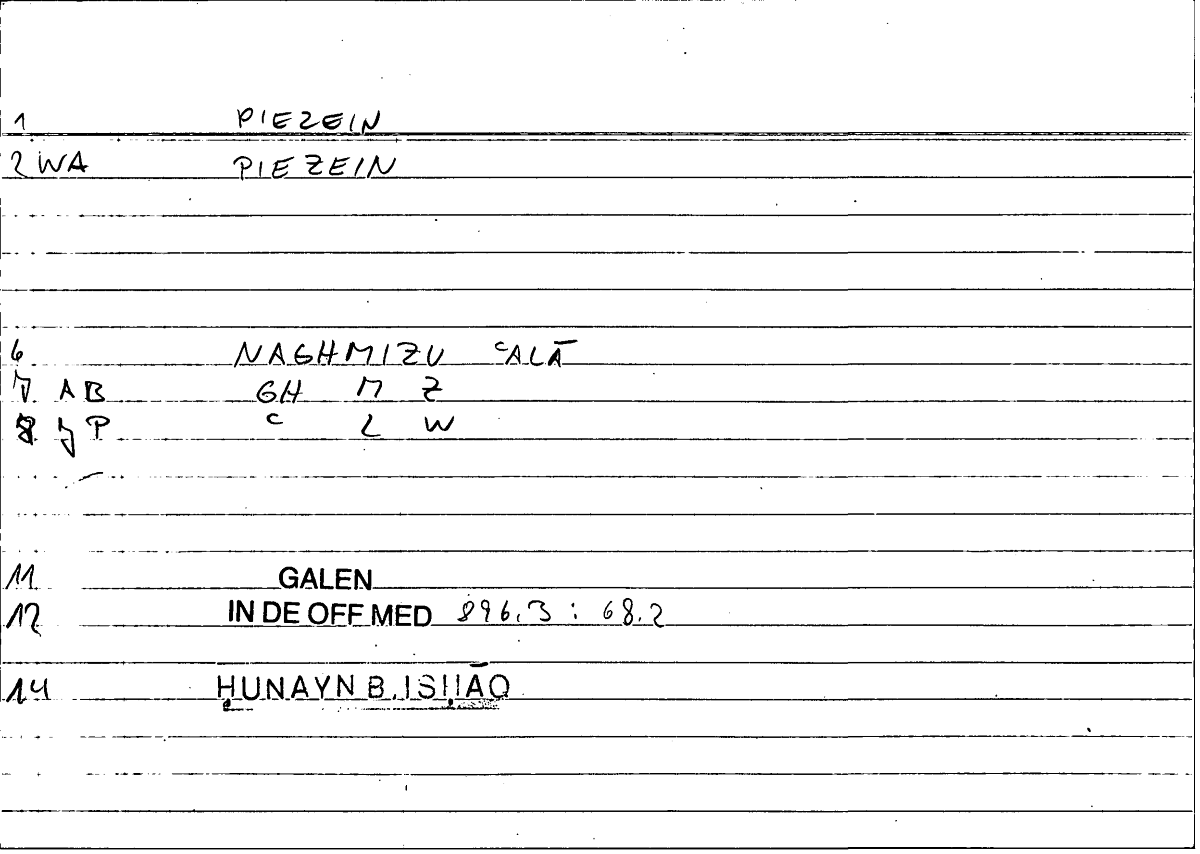 1 PIEZEIN
2 WA PIEZEIN
6 NAGHMIZU ʿALĀ
7 AB GH M Z
8 JP C L W
11 GALEN
12 IN DE OFF MED 896.3 : 68.2
14 ḤUNAYN B. ISḤĀQ